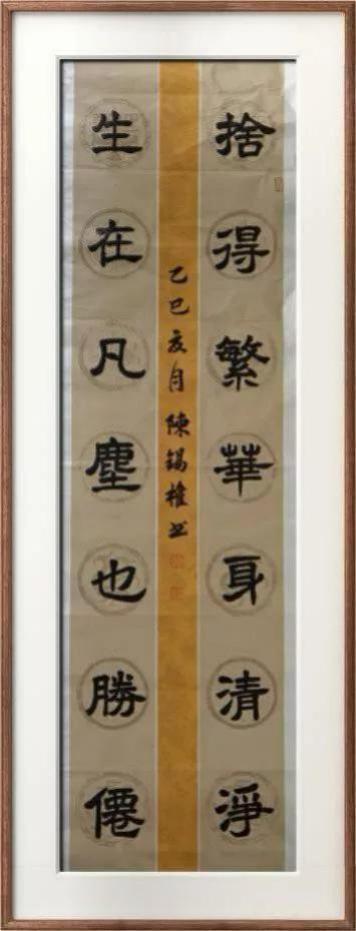 捨得繁華身清淨
生在凡塵也勝僊
乙巳亥月陳錫權书